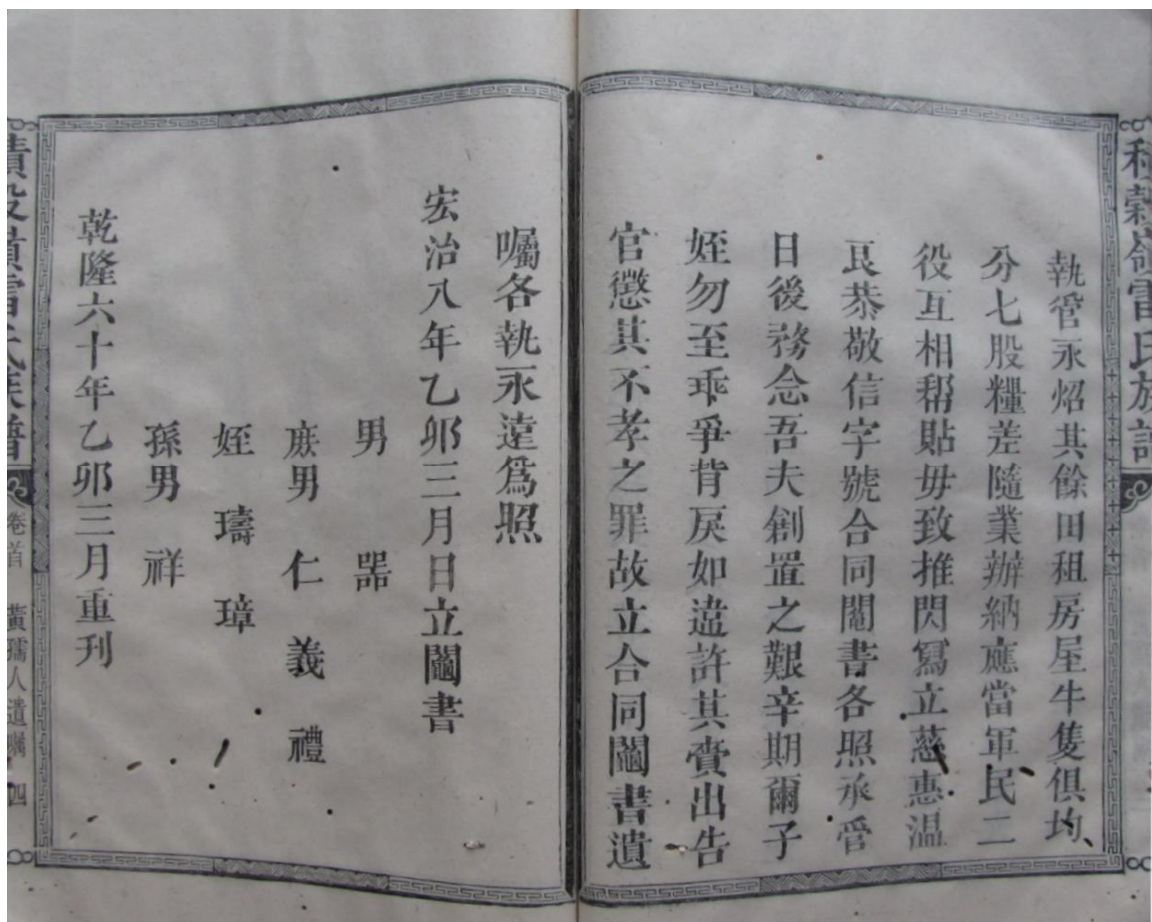 穀嶺雷氏族譜
執管永炤其餘田租房屋牛隻俱均
分七股糧差隨業辦納應當軍民二
役互相帮貼毋致推閃寫立慈惠温
良恭敬信字號合同鬮書各照承管
日後務念吾夫創置之艱辛期爾子
姪勿至乖爭背戾如違許其賫出告
官懲其不孝之罪故立合同鬮書遺
囑各執永遠爲照
宏治八年乙卯三月日立鬮書
男 噐
庶男 仁 義 禮
姪 璹 璋
孫男 祥
乾隆六十年乙卯三月重刊
雷氏族譜 卷首 黃孺人遺囑 四